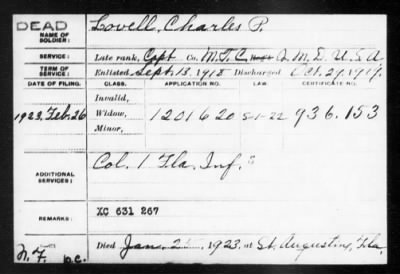 DEAD
NAME OF SOLDIER: Lovell, Charles P.
SERVICE: Late rank, Capt Co. M.T.C. Q.M.D. U.S.A
TERM OF SERVICE: Enlisted Sept. 13. 1918 Discharged Oct. 29. 1919.
DATE OF FILING. CLASS. APPLICATION NO. LAW. CERTIFICATE NO.
Invalid,
1923. Feb. 26 Widow, 1201620 S-1-22 936.153
Minor,
ADDITIONAL SERVICES: Col. 1 Fla. Inf.
REMARKS: XC 631 267
Died Jan. 1923, at St. Augustine, Fla.